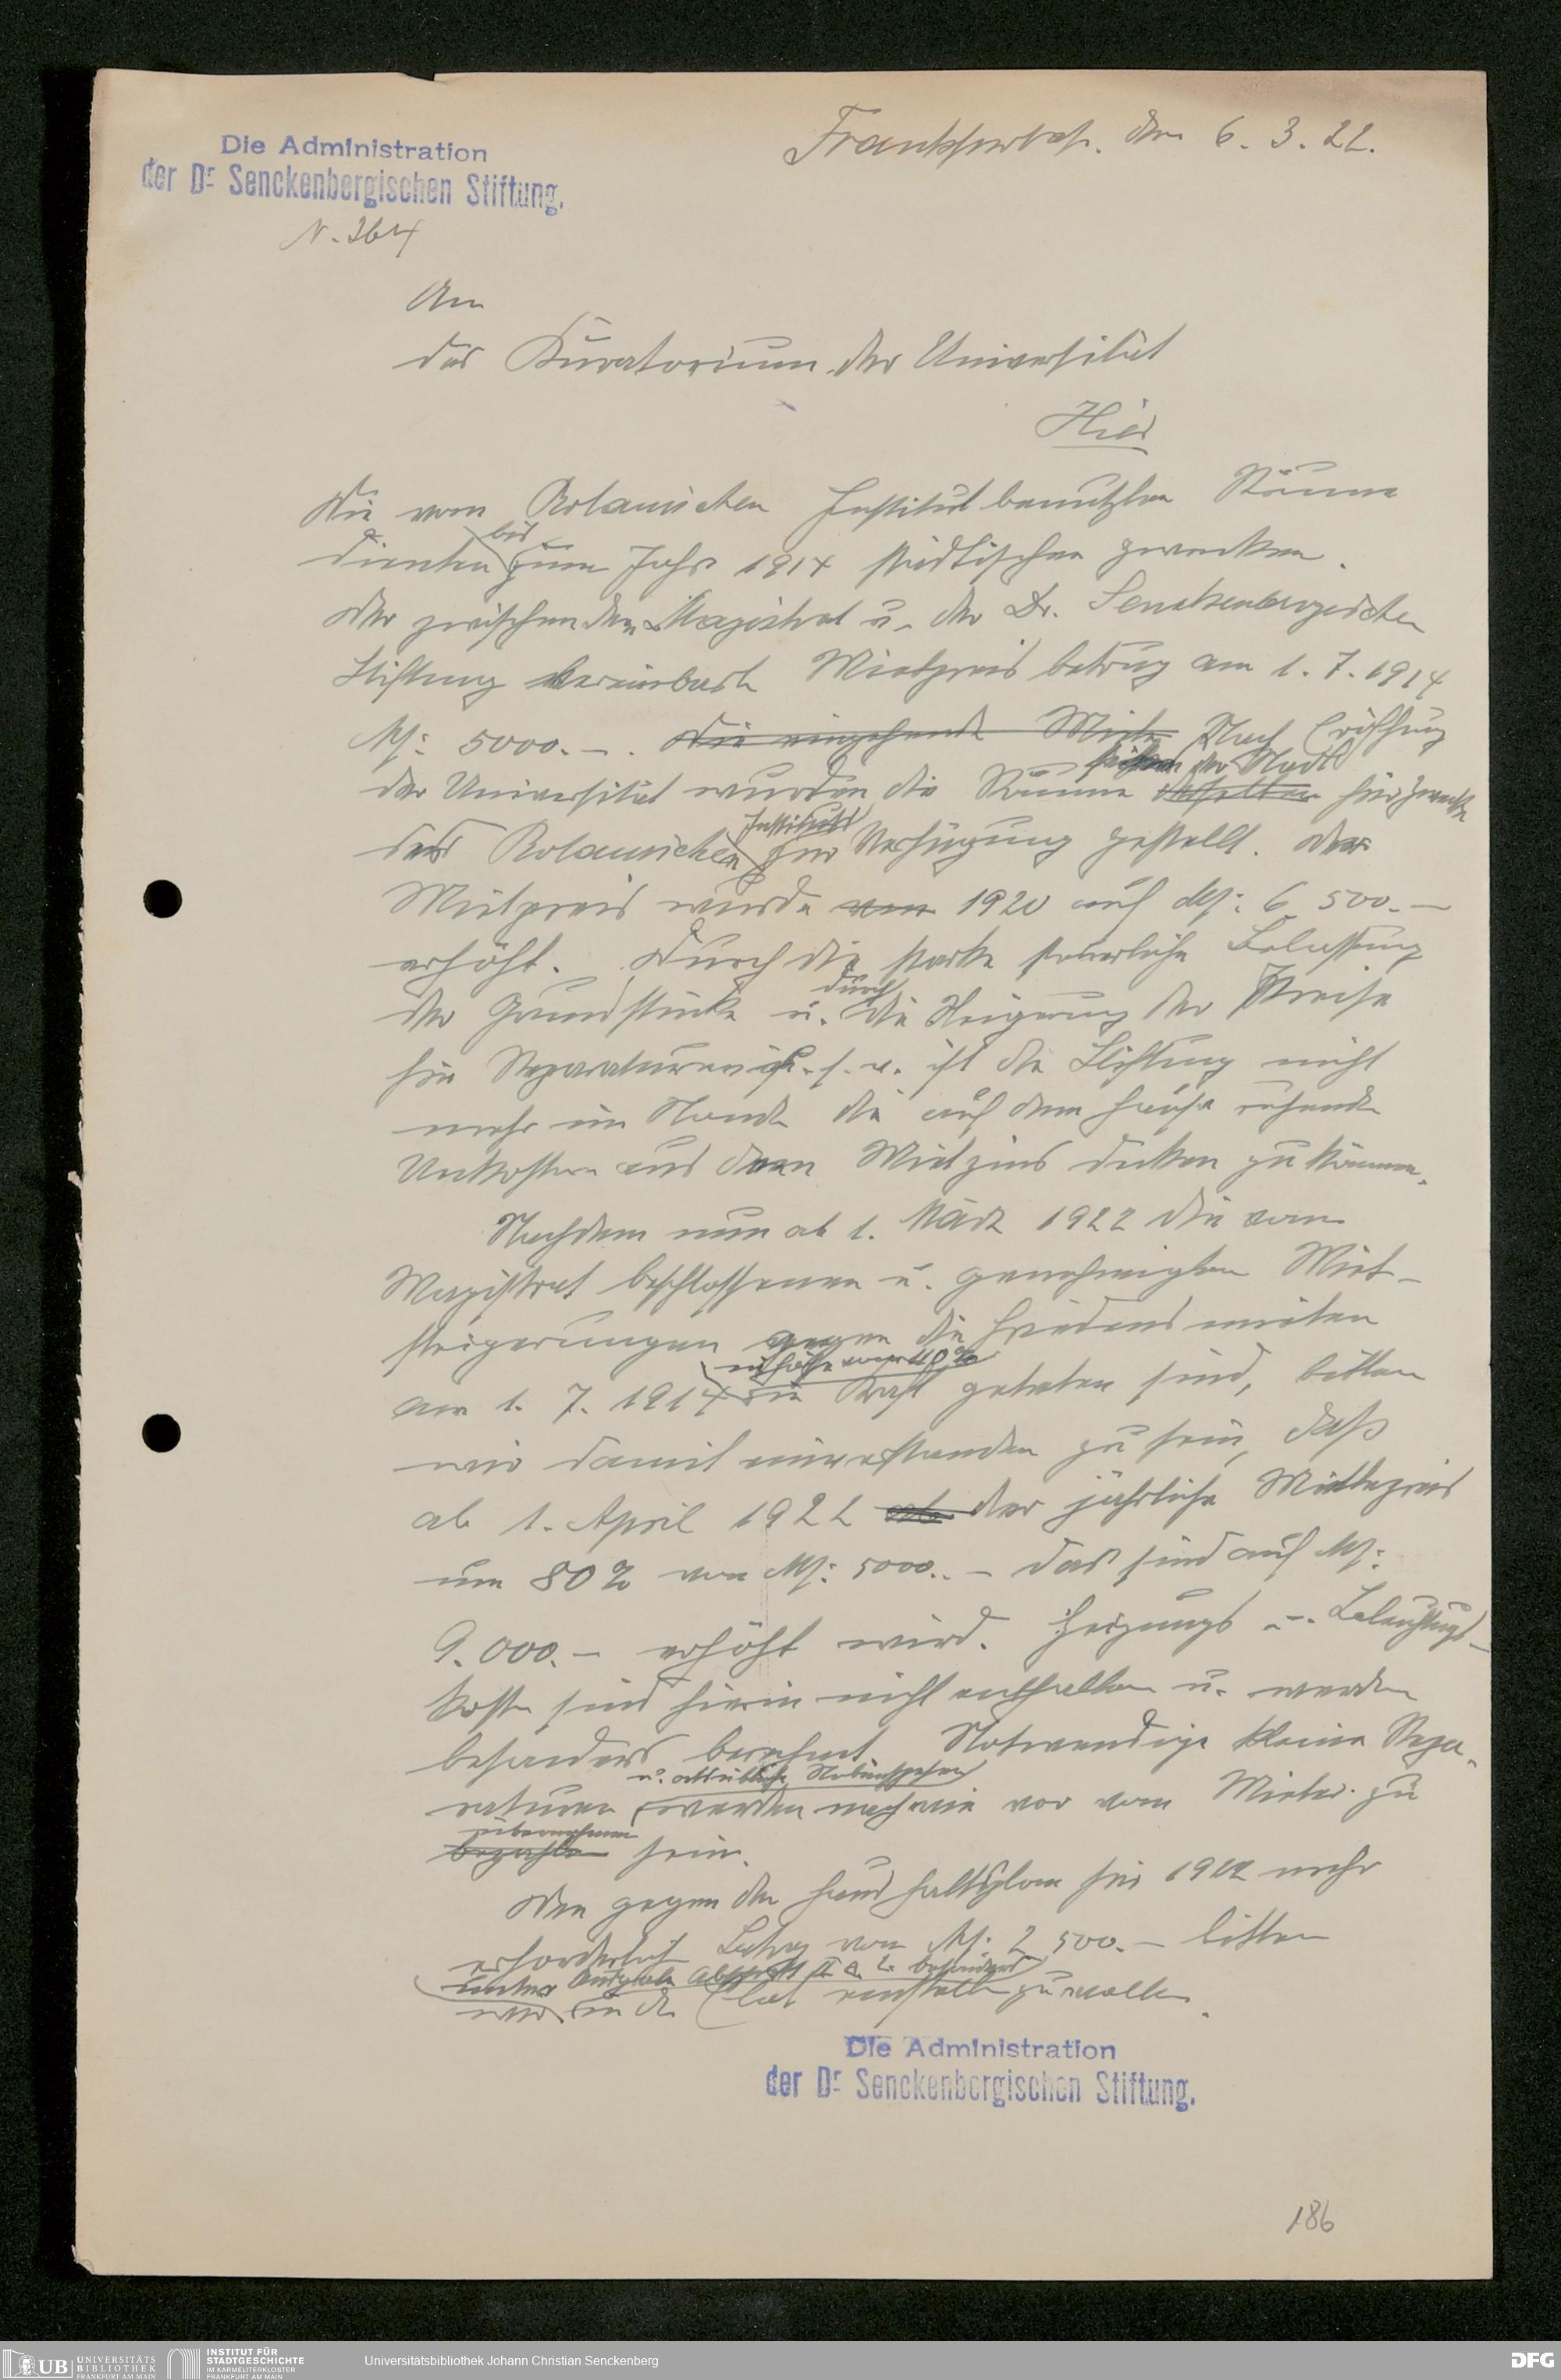 Die Administration
der Dr Senckenbergischen Stiftung.
Frankfurt a/M. den 6. 3. 22.
N. 264
An
das Kuratorium der Universität
Hier
Die vom Botanischen Institut benutzten Räume
dienten bis zum Jahr 1914 städtischen Zwecken.
Der zwischen dem Magistrat u. der Dr. Senckenbergischen
Stiftung vereinbarte Mietpreis betrug am 1. 7. 1914
M: 5000.–. Die eingehende Miete Nach Eröffnung
der Universität wurden die Räume seitens der Stadt für Zwecke
des Botanischen Instituts zur Verfügung gestellt. Der
Mietpreis wurde 1920 auf M: 6 500.–
erhöht. Durch die starke steuerliche Belastung
der Grundstücke u. durch die Steigerung der Preise
für Reparaturen u. s. w. ist die Stiftung nicht
mehr im Stande die auf dem Hause ruhende
Unkosten aus dem Mietzins decken zu können.
Nachdem nun ab 1. März 1922 die vom
Magistrat beschlossenen u. genehmigten Miet-
steigerungen gegen die Friedensmieten
am 1. 7. 1914 in Höhe von 110% in Kraft getreten sind, bitten
wir damit einverstanden zu sein, daß
ab 1. April 1922 der jährliche Mietpreis
um 80% von M: 5000.– das sind auf M:
9.000.– erhöht wird. Heizungs u. Beleuchtungs-
kosten sind hierin nicht enthalten u. werden
besonders berechnet. Notwendige kleine Repa-
raturen u. ortsübliche werden nach wie vor vom Mieter zu
bezahlen übernehmen sein.
Den gegen den Haushaltsplan für 1922 mehr
erforderlich Betrag von M: 2 500.– bitten
unter Ausgabe Abschnitt II a. 2. besonders
wir in den Etat einstellen zu wollen.
Die Administration
der Dr Senckenbergischen Stiftung.
186
UB UNIVERSITÄTS
BIBLIOTHEK
FRANKFURT AM MAIN
INSTITUT FÜR
STADTGESCHICHTE
IM KARMELITERKLOSTER
FRANKFURT AM MAIN
Universitätsbibliothek Johann Christian Senckenberg
DFG